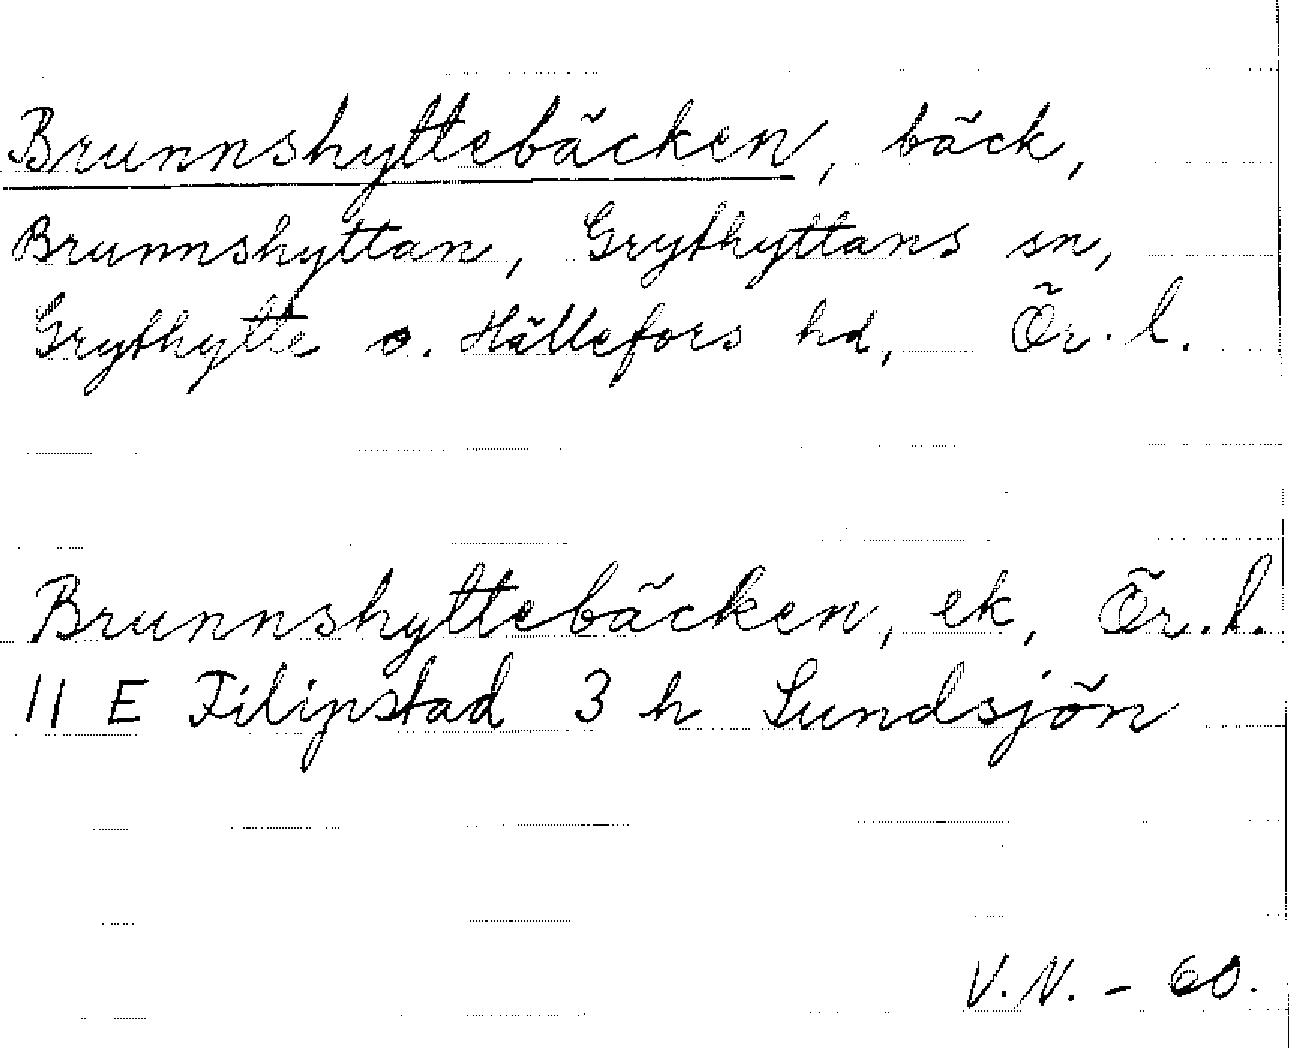 Brunnshyttebäcken, bäck,
Brunnshyttan, Grythyttans sn,
Grythytte o. Hällefors hd, Ör. l.
Brunnshyttebäcken, ek, Ör. l.
11 E Filipstad 3 h Sundsjön
V.N. - 60.